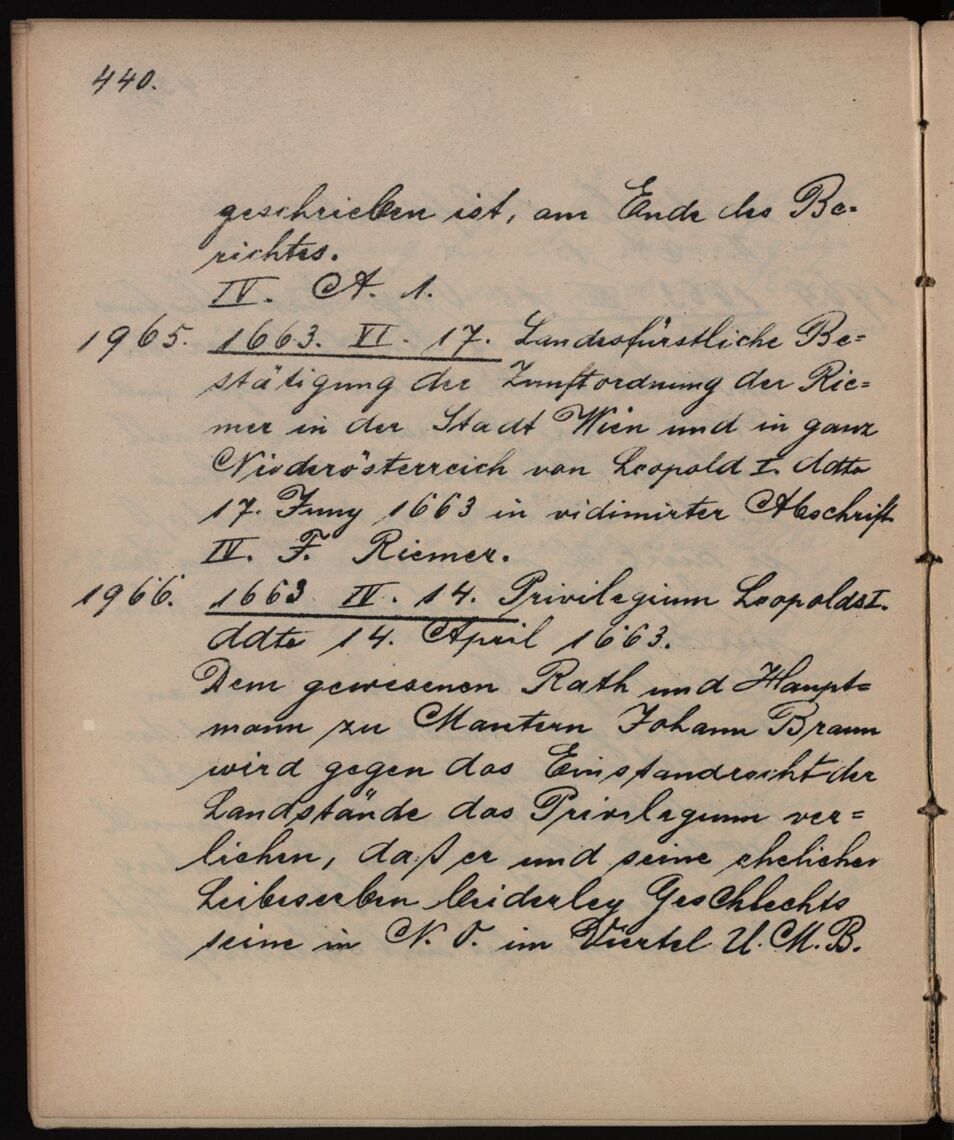 440.
geschrieben ist, am Ende des Be=
richtes.
IV. A. 1.
1965. 1663. VI. 17. Landesfürstliche Be=
stätigung der Zunftordnung der Rie=
mer in der Stadt Wien und in ganz
Niederösterreich von Leopold I. ddto
17. Juny 1663 in vidimirter Abschrift
IV. F. Riemer.
1966. 1663 IV. 14. Privilegium Leopolds I.
ddto 14. April 1663.
Dem gewesenen Rath und Haupt=
mann zu Mautern Johann Braun
wird gegen das Einstandrecht der
Landstände das Privilegium ver=
liehen, daß er und seine ehelichen
Leibeserben beiderley Geschlechts
seine in N. Ö. im Viertel U. M. B.